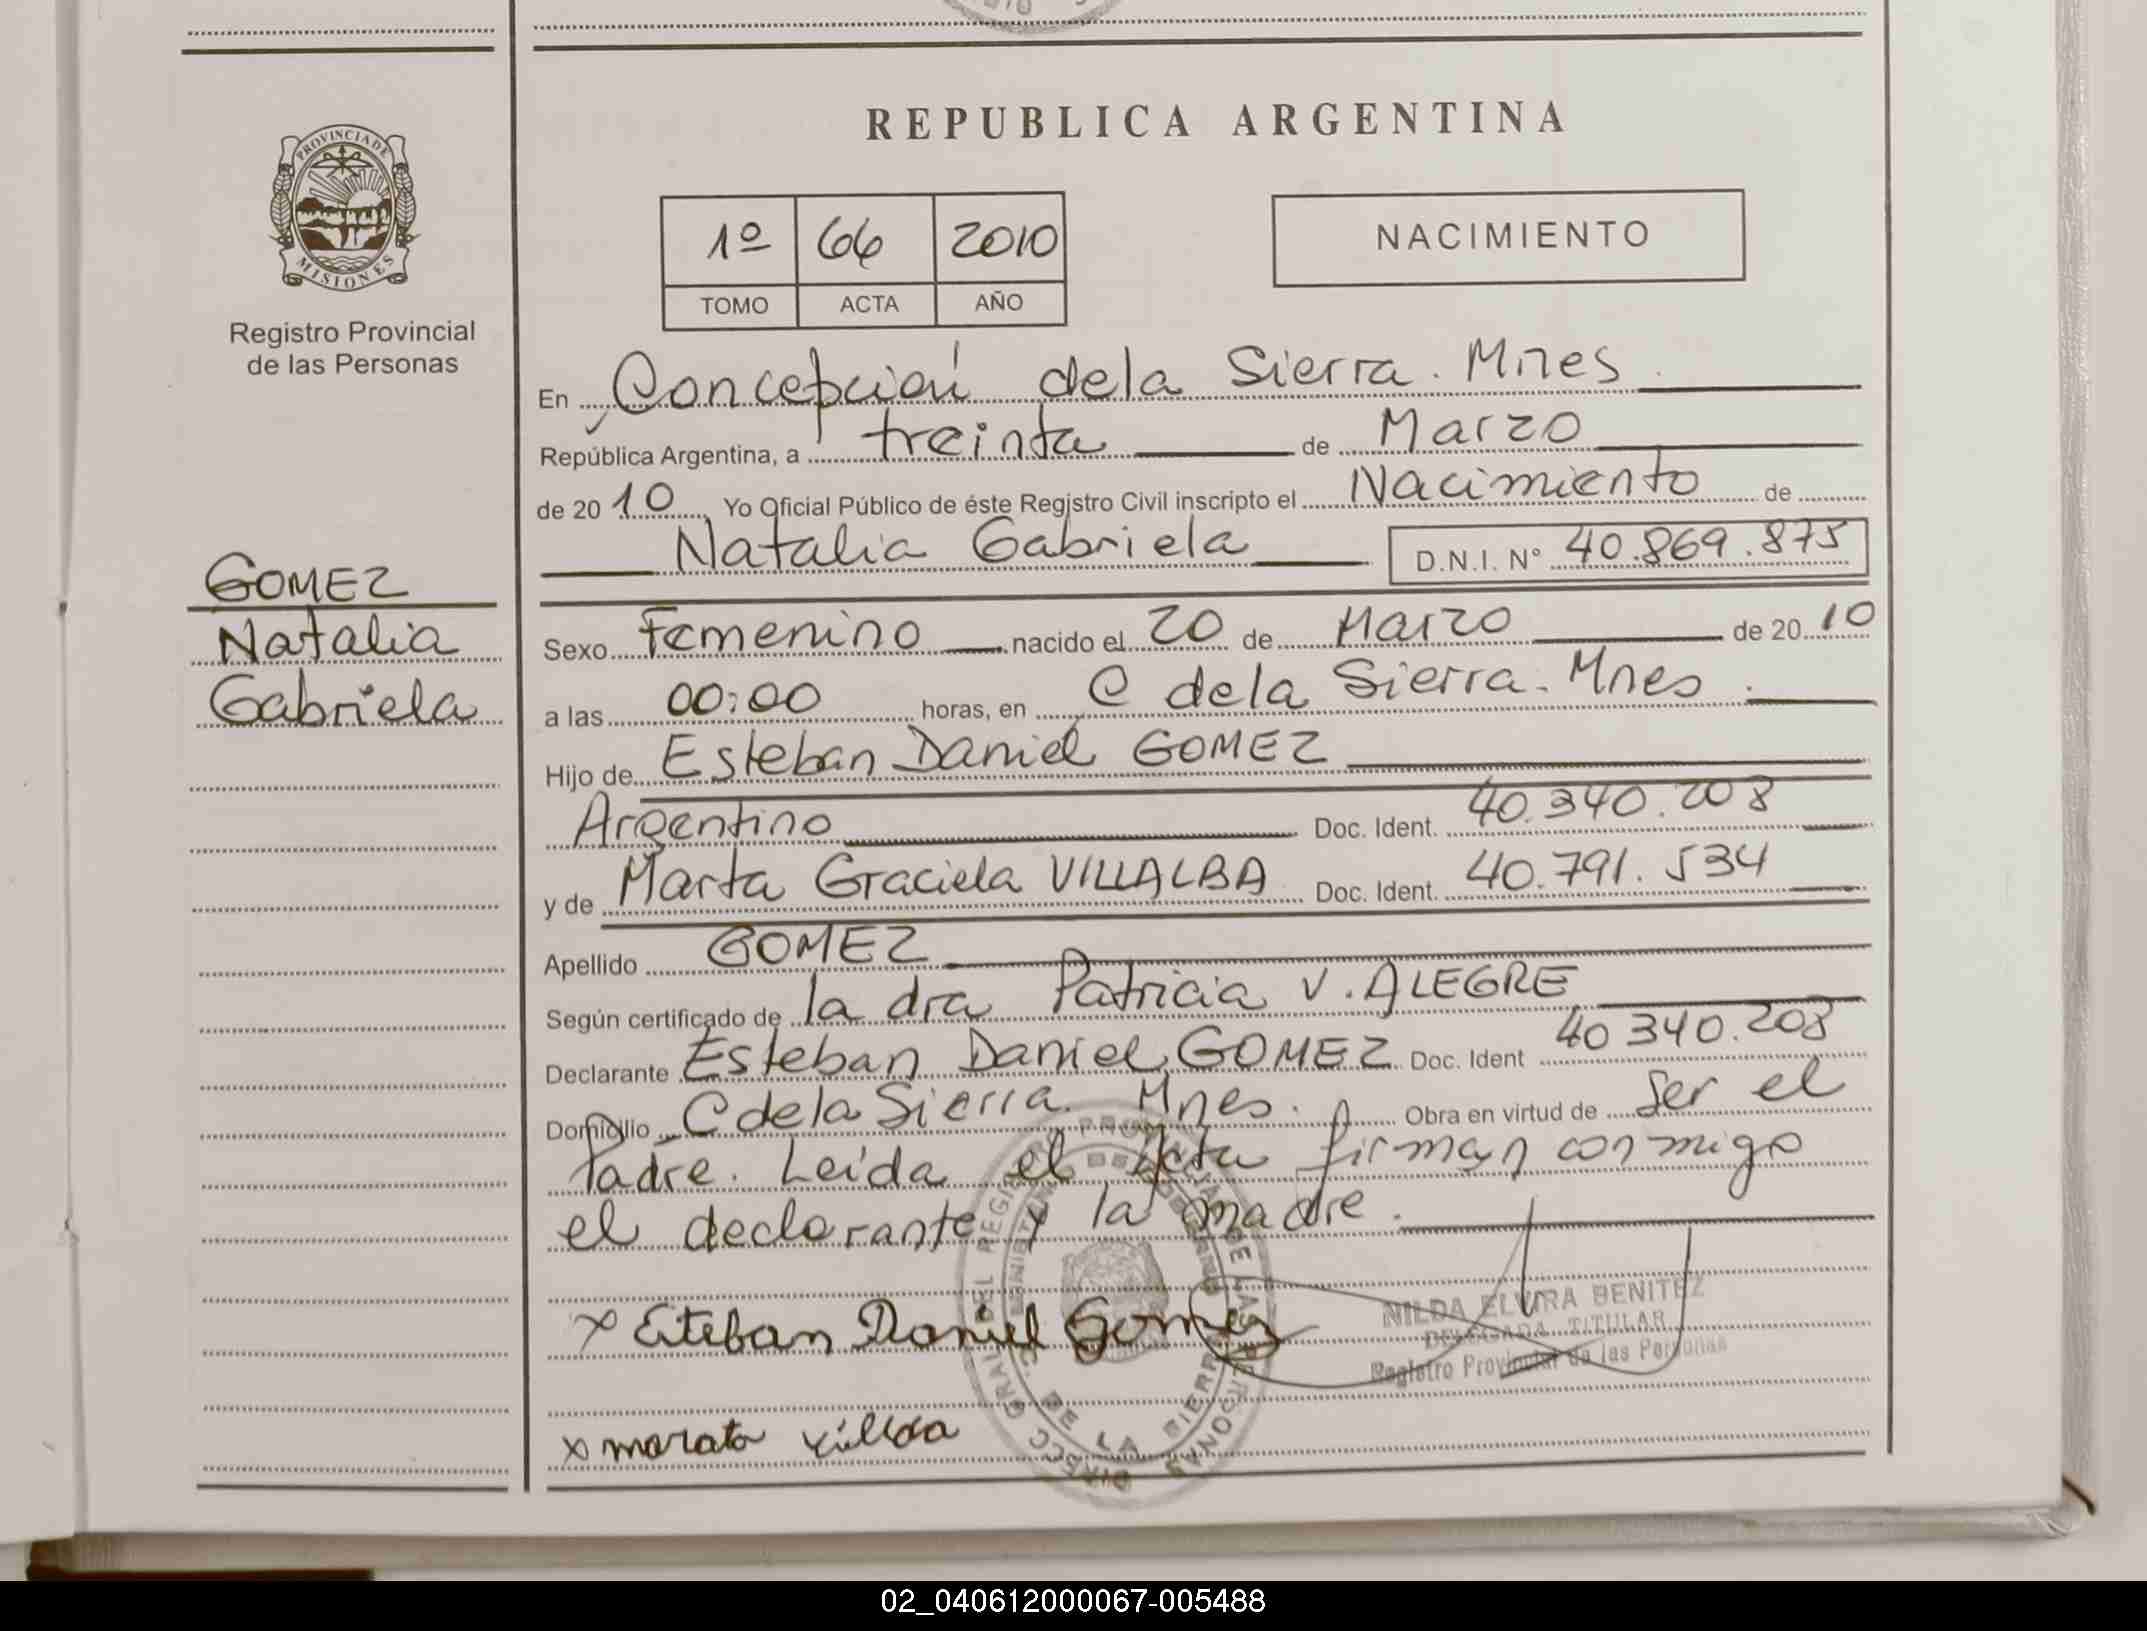 PROVINCIA DE
MISIONES
Registro Provincial
de las Personas
GOMEZ
Natalia
Gabriela
REPUBLICA ARGENTINA
1º 66 2010
TOMO ACTA AÑO
NACIMIENTO
En Concepción de la Sierra. Mnes
República Argentina, a treinta de Marzo
de 2010 Yo Oficial Público de éste Registro Civil inscripto el Nacimiento de
Natalia Gabriela D.N.I. Nº 40.869.875
Sexo Femenino nacido el 20 de Marzo de 2010
a las 00:00 horas, en C de la Sierra. Mnes.
Hijo de Esteban Daniel GOMEZ
Argentino Doc. Ident. 40.340.208
y de Marta Graciela VILLALBA Doc. Ident. 40.791.534
Apellido GOMEZ
Según certificado de la dra Patricia V. ALEGRE
Declarante Esteban Daniel GOMEZ Doc. Ident 40 340.208
Domicilio C de la Sierra. Mnes. Obra en virtud de Ser el
Padre. Leída el Acta firman conmigo
el declarante y la madre.
x Esteban Daniel Gomez
NILDA ELVIRA BENITEZ
DELEGADA TITULAR
Registro Provincial de las Personas
DIRECC GRAL DEL REGISTRO PROVINCIAL DE LAS PERSONAS
DE LA SIERRA
02_040612000067-005488